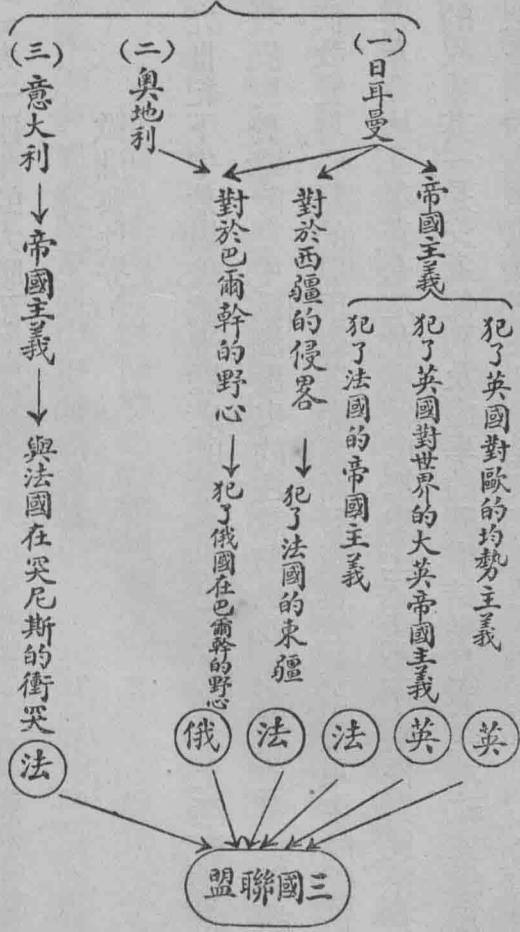 (一)日耳曼
帝國主義
犯了英國對歐的均勢主義
犯了英國對世界的大英帝國主義
犯了法國的帝國主義
對於西疆的侵畧
犯了法國的東疆
對於巴爾幹的野心
犯了俄國在巴爾幹的野心
(二)奥地利
(三)意大利
帝國主義
與法國在突尼斯的衝突
英
英
法
法
俄
法
三國聯盟